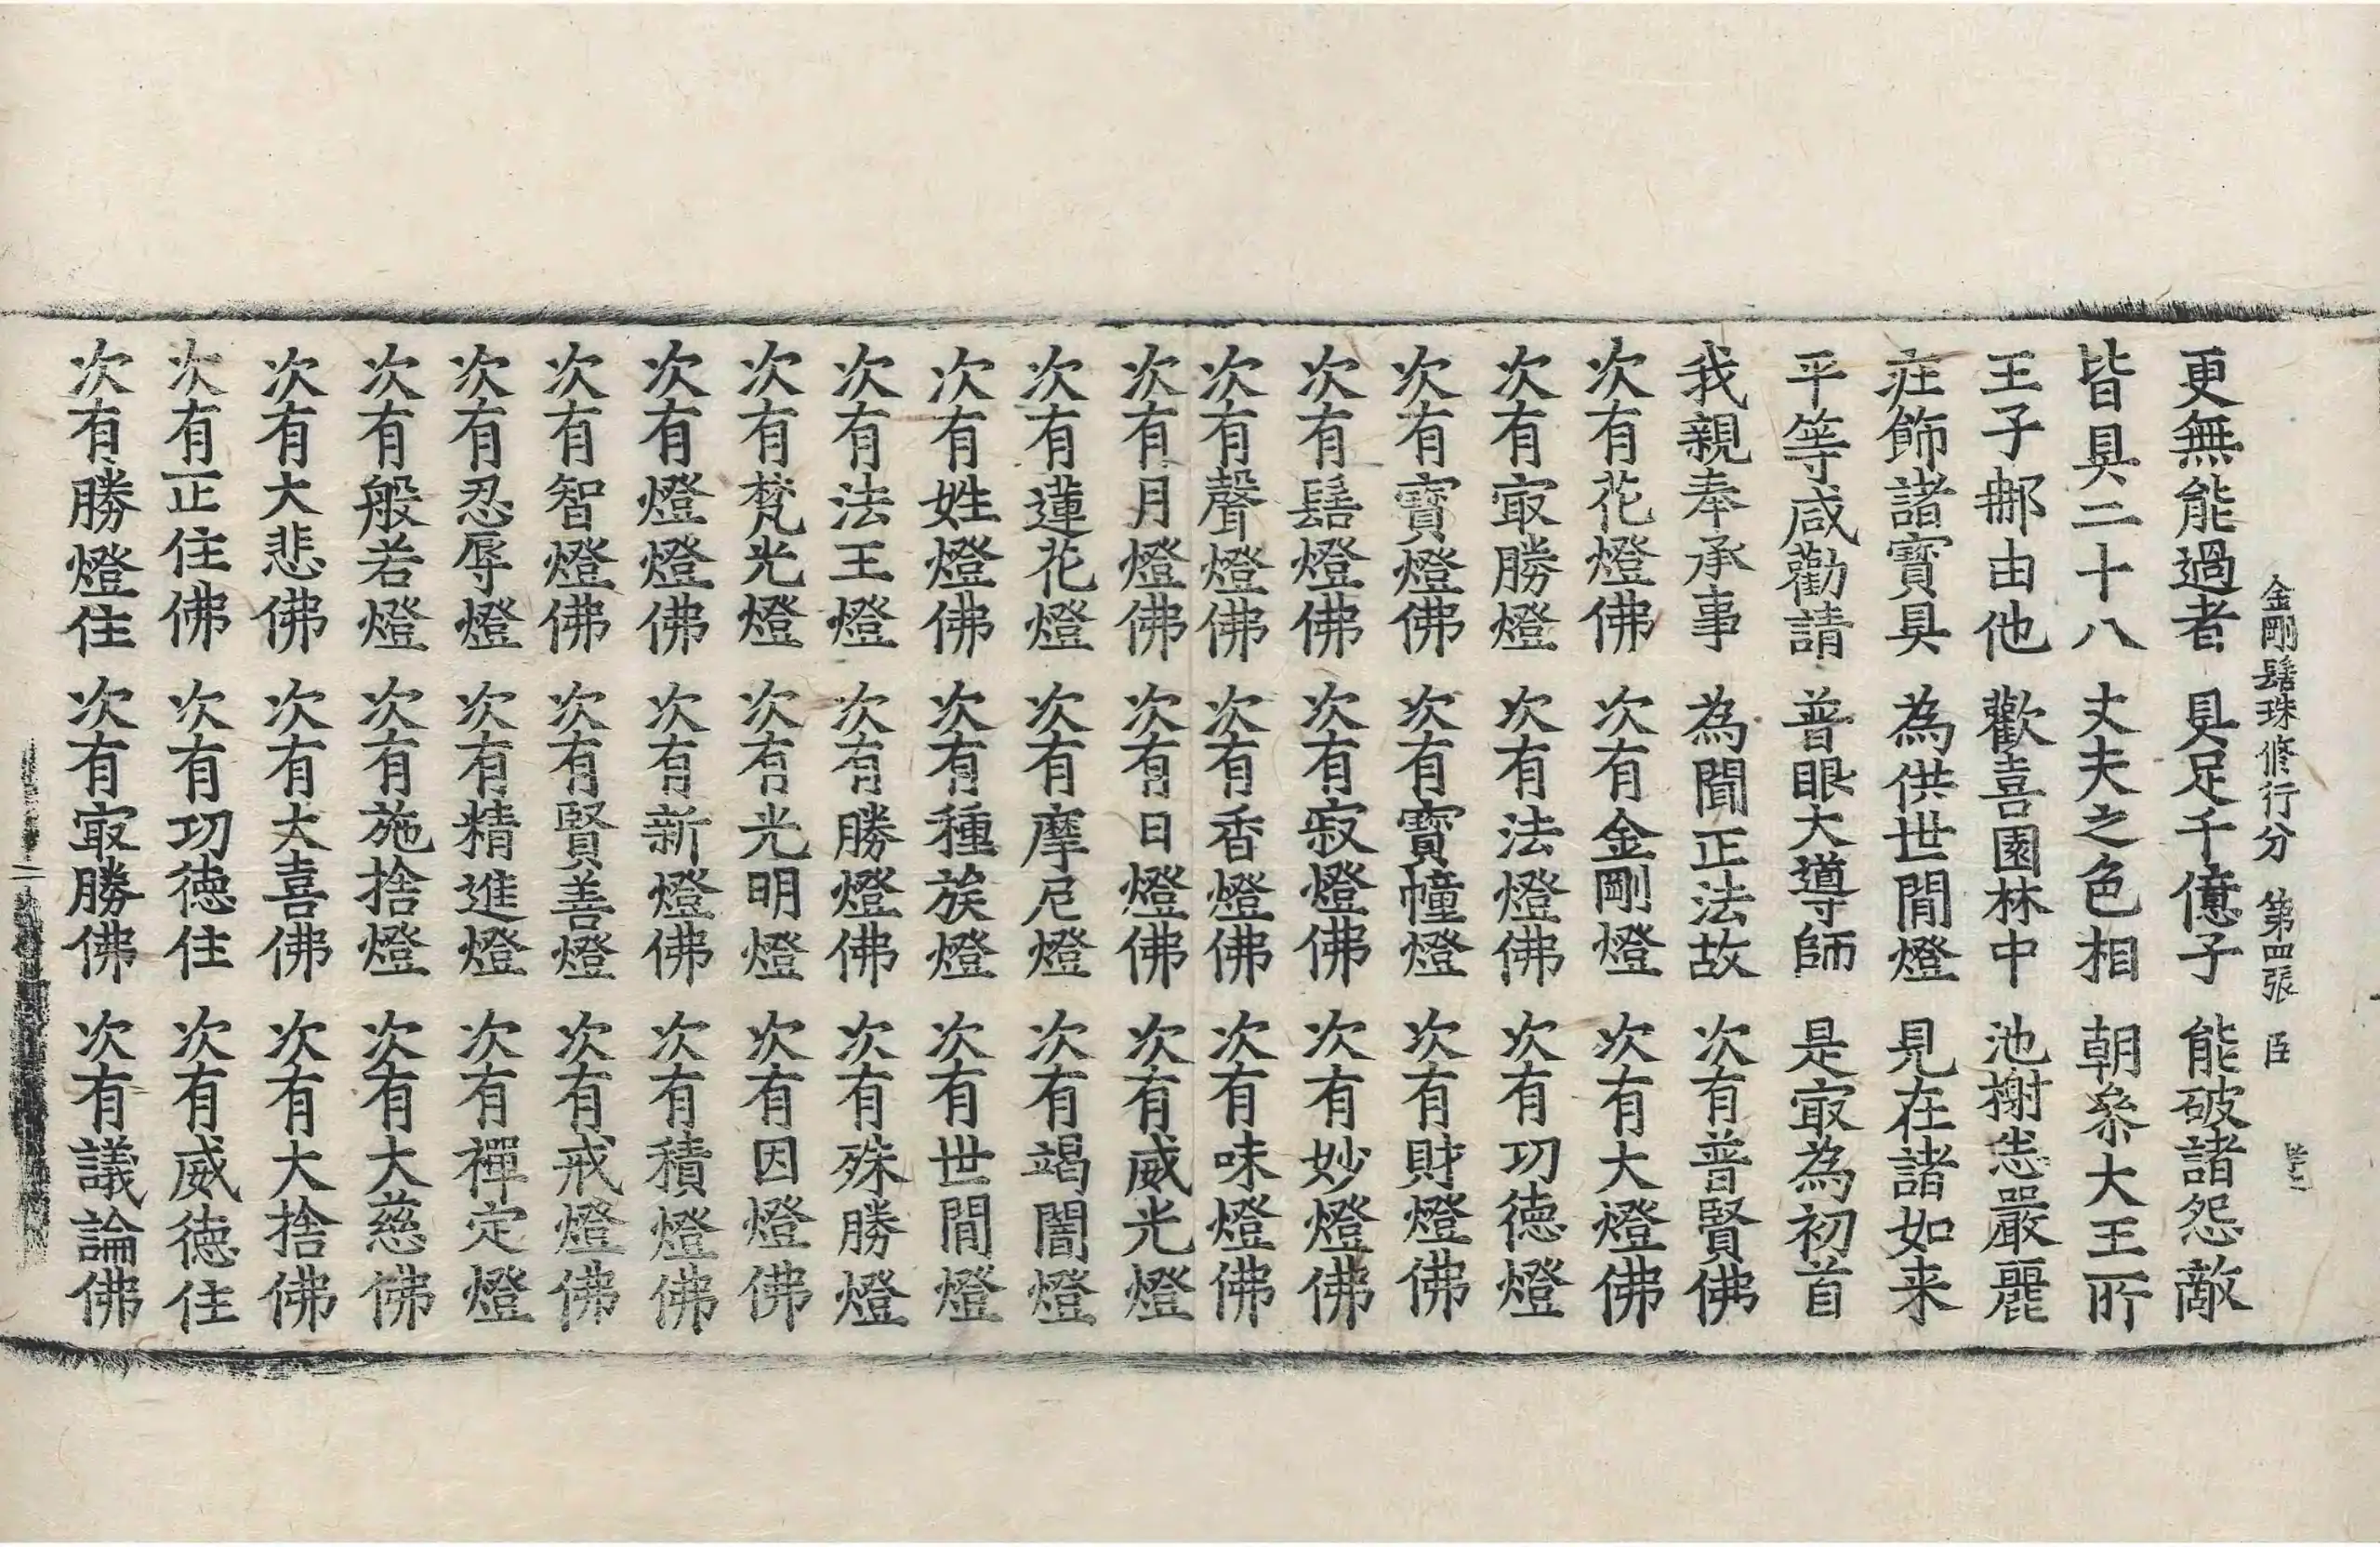 金剛髻珠修行分 第四張 臣
更無能過者 具足千億子 能破諸怨敵
皆具二十八 丈夫之色相 朝叅大王所
王子𨚗由他 歡喜園林中 池榭悉嚴麗
庄飾諸寶具 為供世間燈 見在諸如来
平等咸勸請 普眼大導師 是㝡為初首
我親奉承事 為聞正法故 次有普賢佛
次有花燈佛 次有金剛燈 次有大燈佛
次有㝡勝燈 次有法燈佛 次有功德燈
次有寶燈佛 次有寶幢燈 次有財燈佛
次有髻燈佛 次有寂燈佛 次有妙燈佛
次有聲燈佛 次有香燈佛 次有味燈佛
次有月燈佛 次有日燈佛 次有威光燈
次有蓮花燈 次有摩尼燈 次有竭闇燈
次有姓燈佛 次有種族燈 次有世間燈
次有法王燈 次有勝燈佛 次有殊勝燈
次有梵光燈 次有光明燈 次有因燈佛
次有燈燈佛 次有新燈佛 次有積燈佛
次有智燈佛 次有賢善燈 次有戒燈佛
次有忍辱燈 次有精進燈 次有禪定燈
次有般若燈 次有施捨燈 次有大慈佛
次有大悲佛 次有大喜佛 次有大捨佛
次有正住佛 次有功德住 次有威德住
次有勝燈住 次有㝡勝佛 次有議論佛